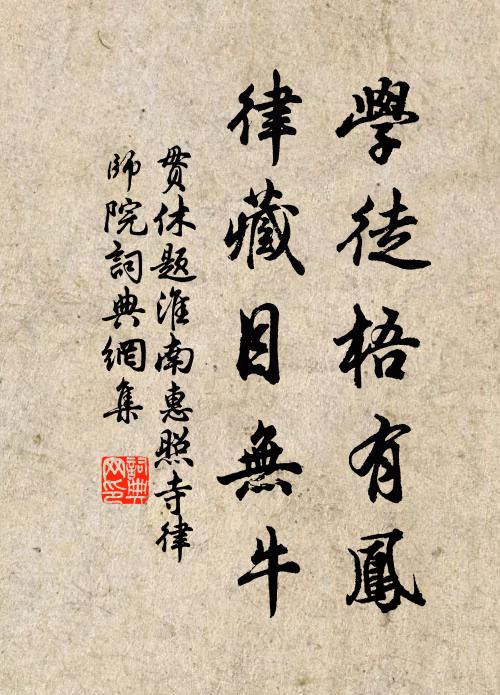 學徒梧有鳳
律藏目無牛
贯休题淮南惠照寺律
師院詞典網集
詞典
网印